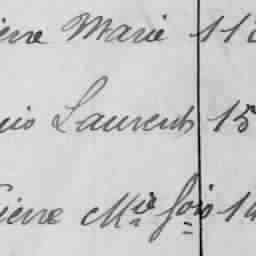 ierre Marie 11
uis Laurent 15
ierre Mie fois 1